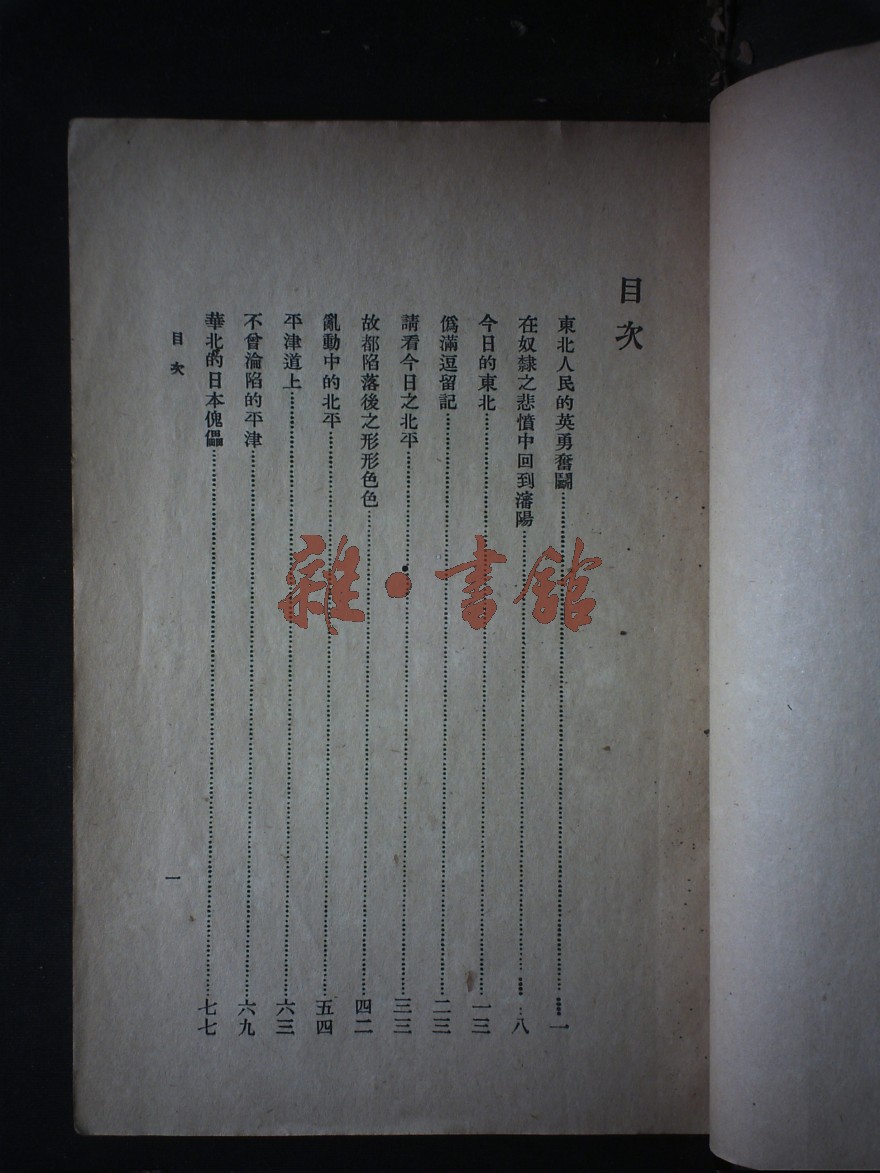 目次
東北人民的英勇奮鬭……一
在奴隸之悲憤中回到瀋陽……八
今日的東北……一三
僞滿逗留記……二三
請看今日之北平……三三
故都陷落後之形形色色……四二
亂動中的北平……五四
平津道上……六三
不曾淪陷的平津……六九
華北的日本傀儡……七七
目次
一
雜·書館